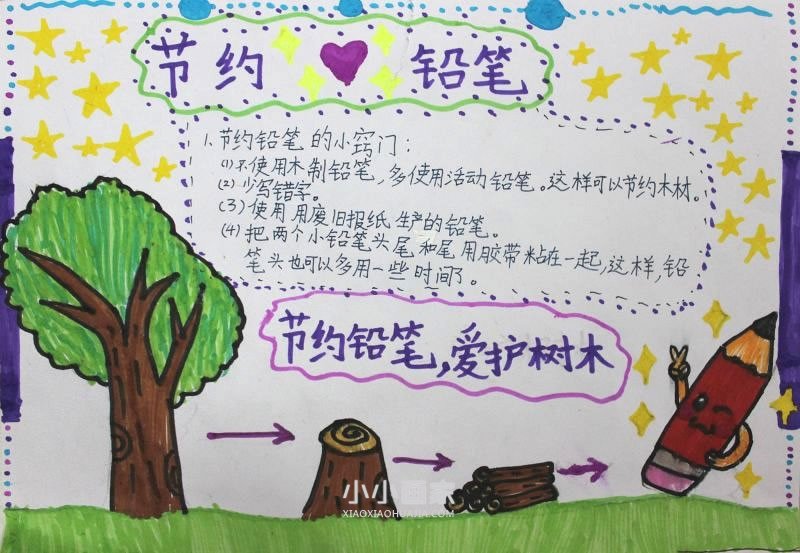 节约 铅笔
1.节约铅笔的小窍门：
(1)不使用木制铅笔，多使用活动铅笔。这样可以节约木材。
(2)少写错字。
(3)使用用废旧报纸生产的铅笔。
(4)把两个小铅笔头尾和尾用胶带粘在一起，这样，铅
笔头也可以多用一些时间了。
节约铅笔，爱护树木
小小画家
XIAOXIAOHUAJIA.COM